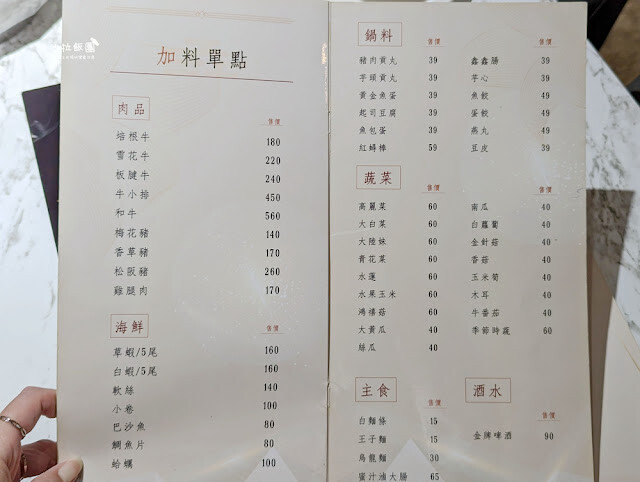 加料單點
肉品
售價
培根牛 180
雪花牛 220
板腱牛 240
牛小排 450
和牛 560
梅花豬 140
香草豬 170
松阪豬 260
雞腿肉 170
海鮮
售價
草蝦/5尾 160
白蝦/5尾 160
軟絲 140
小卷 100
巴沙魚 80
鯛魚片 80
蛤蠣 100
鍋料
售價 售價
豬肉貢丸 39 鑫鑫腸 39
芋頭貢丸 39 芋心 39
黃金魚蛋 39 魚餃 49
起司豆腐 39 蛋餃 49
魚包蛋 39 燕丸 49
紅蟳棒 59 豆皮 39
蔬菜
售價 售價
高麗菜 60 南瓜 40
大白菜 60 白蘿蔔 40
大陸妹 60 金針菇 40
青花菜 60 香菇 40
水蓮 60 玉米筍 40
水果玉米 60 木耳 40
鴻禧菇 60 牛番茄 40
大黃瓜 40 季節時蔬 60
絲瓜 40
主食
售價
白麵條 15
王子麵 15
烏龍麵 30
蜜汁滷大腸 65
酒水
售價
金牌啤酒 90